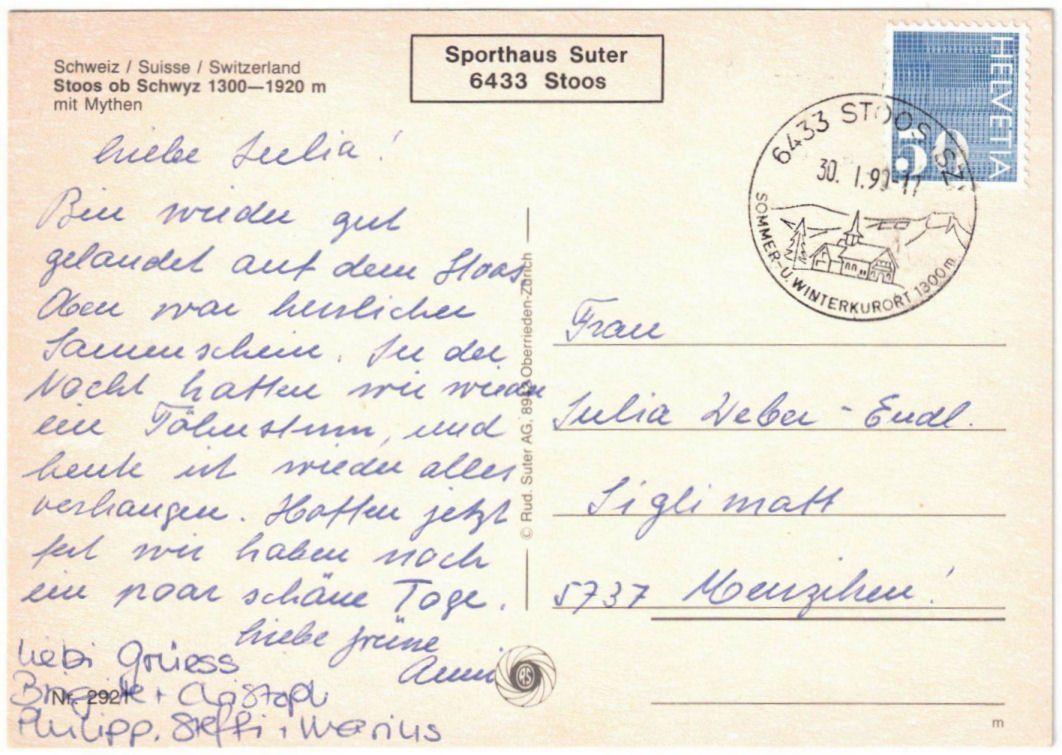 Schweiz / Suisse / Switzerland
Stoos ob Schwyz 1300—1920 m
mit Mythen
Sporthaus Suter
6433 Stoos
HELVETIA
50
6433 STOOS SZ
30. 1.90-17
SOMMER-U. WINTERKURORT 1300m
Liebe Julia!
Bin wieder gut
gelandet auf dem Stoos
Oben war herrlicher
Sonnenschein. In der
Nacht hatten wir wieder
ein Föhnsturm, und
heute ist wieder alles
verhangen. Hoffen jetzt
fest wir haben noch
ein paar schöne Tage.
Liebe Grüsse
Anni
Liebi Grüess
Brigitte + Christoph
Philipp, Steffi, Marius
Nr. 2921
© Rud. Suter AG, 8942 Oberrieden-Zürich
RS
Frau
Julia Weber-Endl.
Siglimatt
5737 Menziken!
m